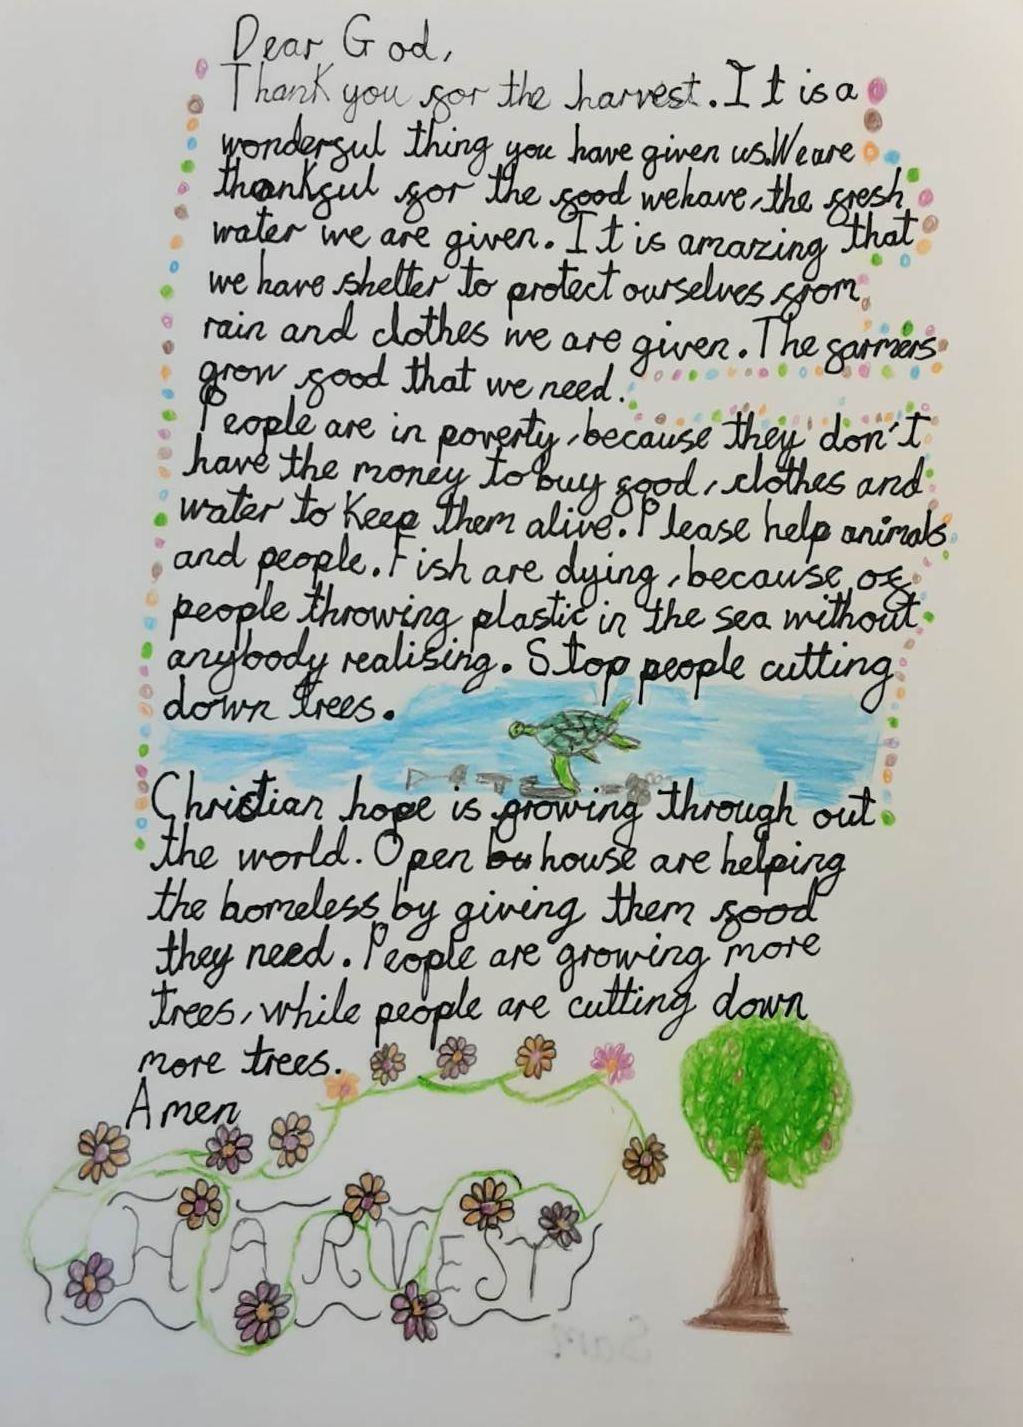 Dear God,
Thank you for the harvest. It is a
wonderful thing you have given us. We are
thankful for the food we have, the fresh
water we are given. It is amazing that
we have shelter to protect ourselves from
rain and clothes we are given. The farmers
grow food that we need.
People are in poverty, because they don't
have the money to buy food, clothes and
water to keep them alive. Please help animals
and people. Fish are dying, because of
people throwing plastic in the sea without
anybody realising. Stop people cutting
down trees.
Christian hope is growing through out
the world. Open house are helping
the homeless by giving them food
they need. People are growing more
trees, while people are cutting down
more trees.
Amen
HARVEST